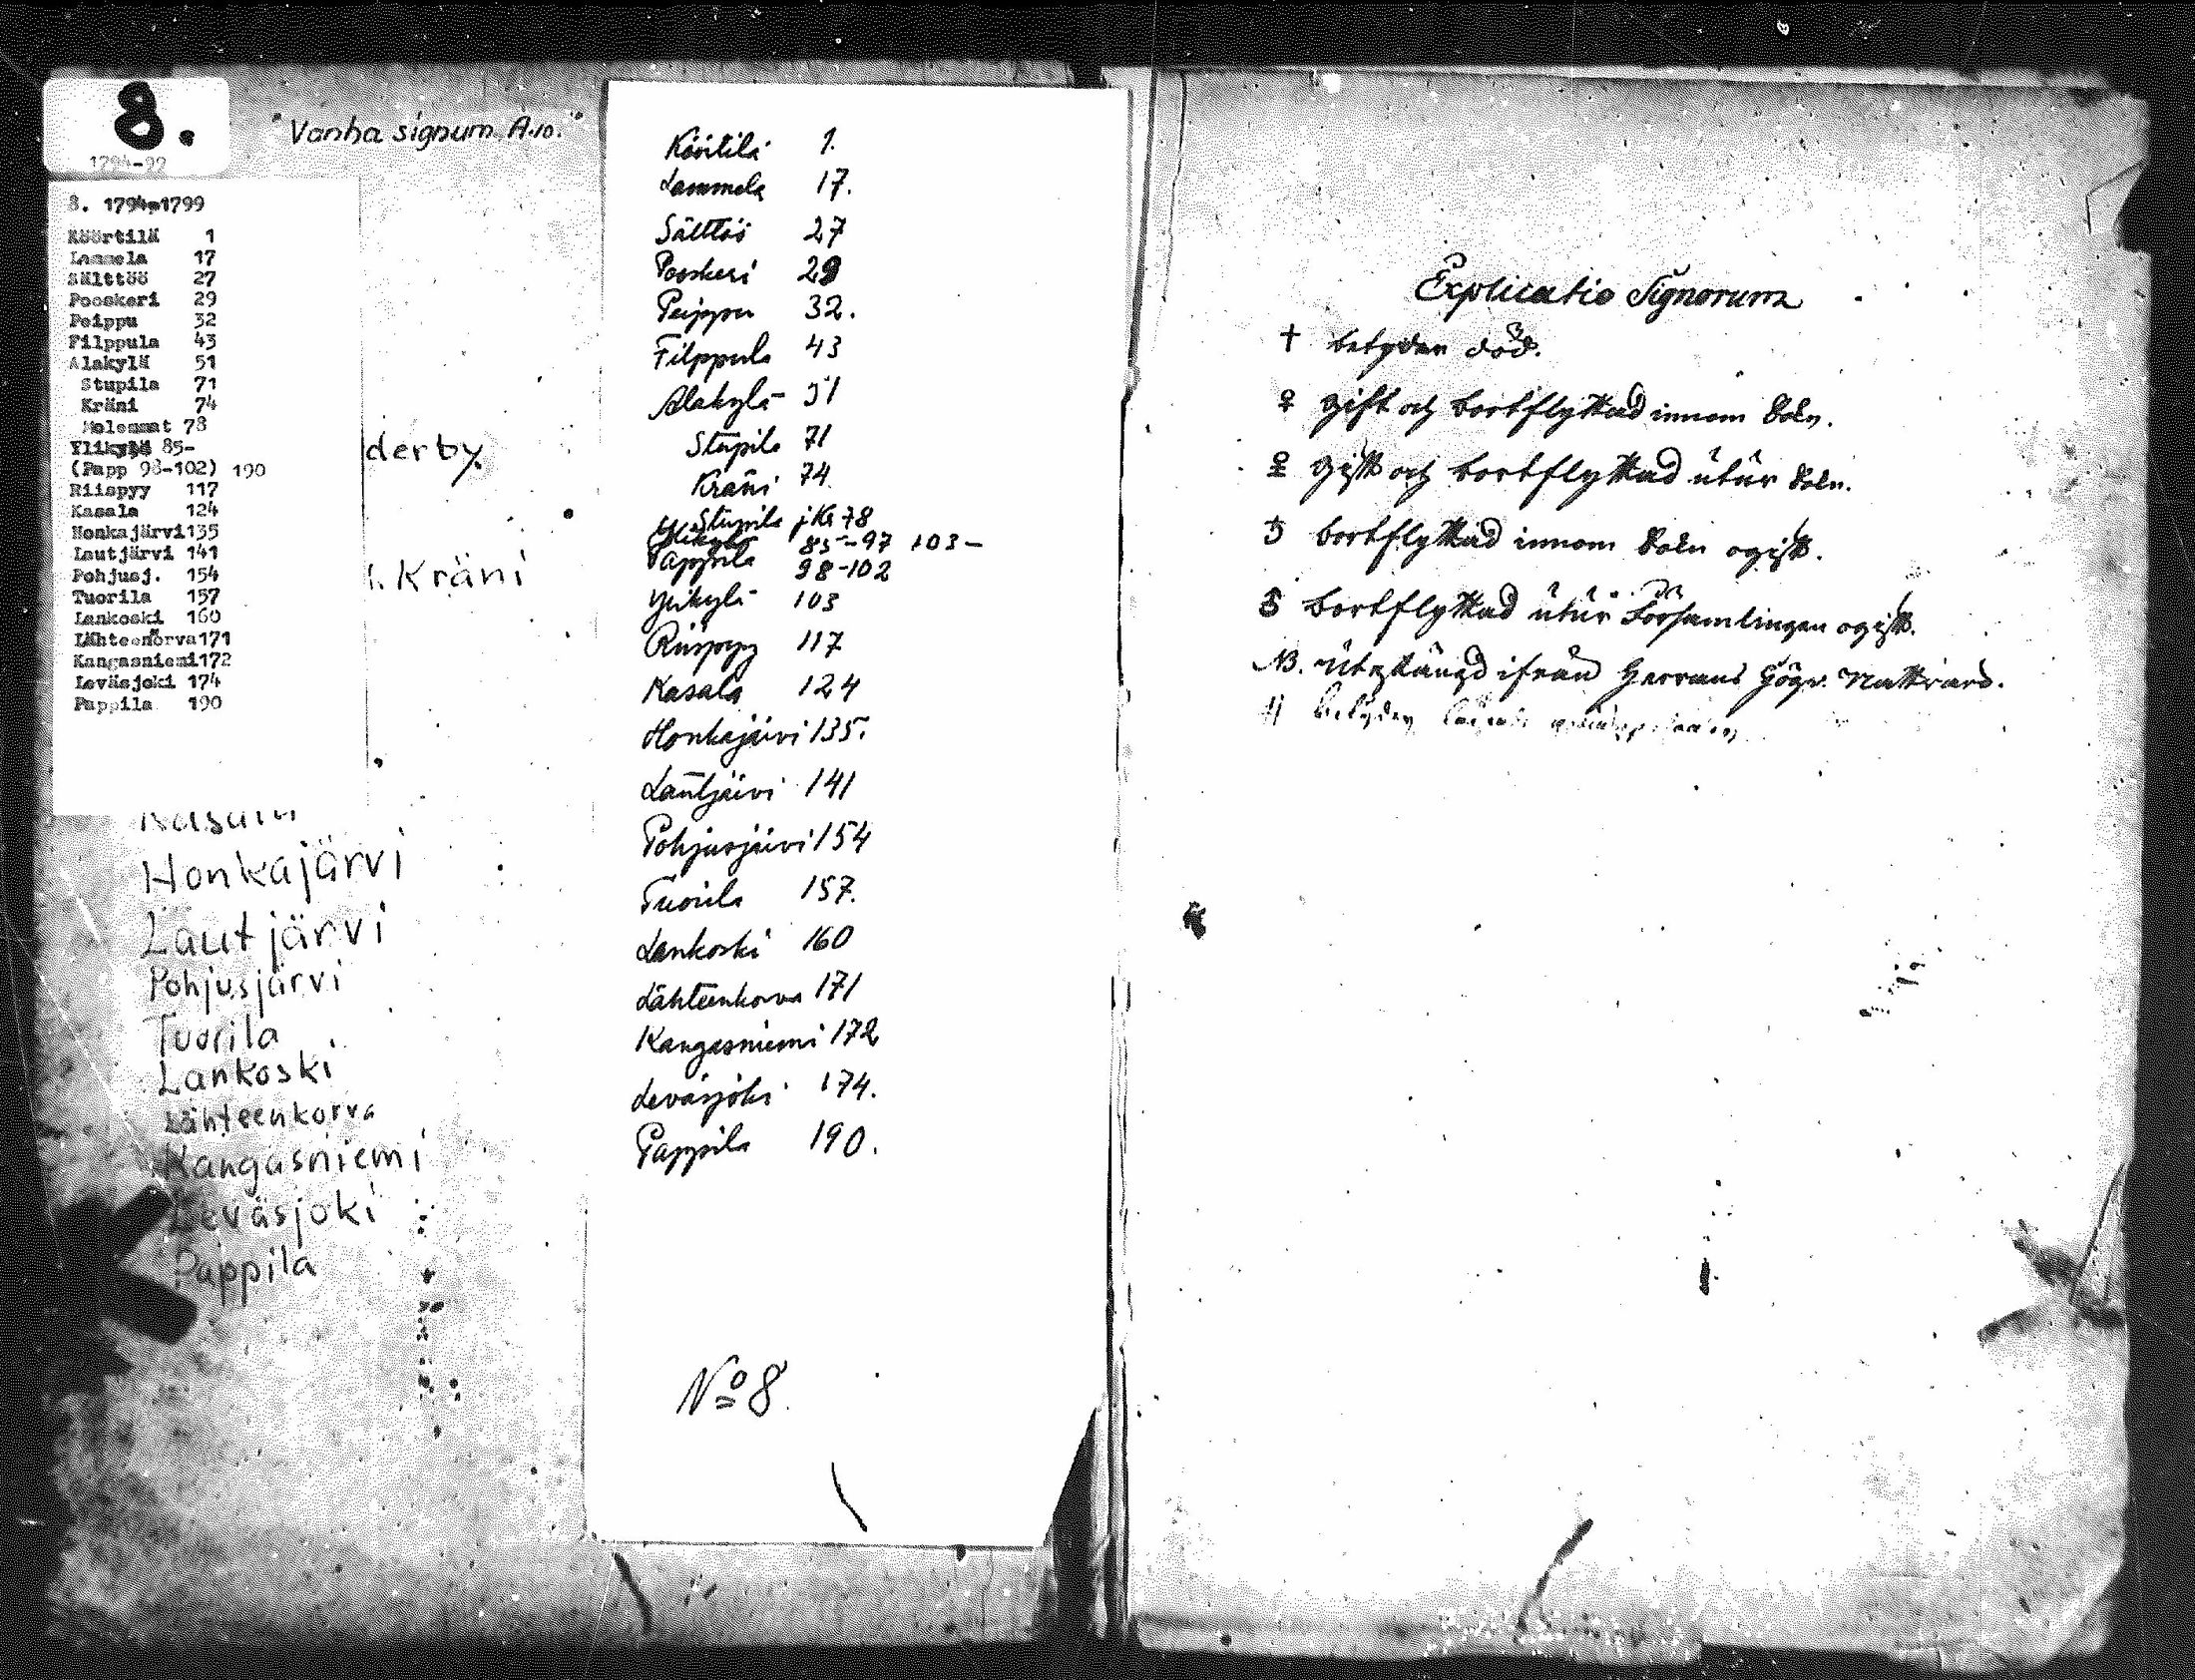 8.
1794-99
"Vanha signum A.10."
8. 1794-1799
Köörtilä 1
Lammela 17
Sälttöö 27
Pooskeri 29
Peippu 32
Filppula 43
Alakylä 51
Stupila 71
Kräni 74
Molemmat 78
Ylikylä 85-
(Papp 98-102) 190
Riispyy 117
Kasala 124
Honkajärvi 135
Lautjärvi 141
Pohjusj. 154
Tuorila 157
Lankoski 160
Lähteenkorva 171
Kangasniemi 172
Leväsjoki 174
Pappila 190
derby
Kräni
Kasala
Honkajärvi
Lautjärvi
Pohjusjärvi
Tuorila
Lankoski
Lähteenkorva
Kangasniemi
Leväsjoki
Pappila
Köörtilä 1.
Lammela 17.
Sälttöö 27
Pooskeri 29
Peippu 32.
Filppula 43
Alakylä 51
Stupila 71
Kräni 74
Stupila j Kr 78
Ylikylä 85-97 103-
Pappila 98-102
Ylikylä 103
Riispyy 117
Kasala 124
Honkajärvi 135.
Lautjärvi 141
Pohjusjärvi 154
Tuorila 157.
Lankoski 160
Lähteenkorva 171
Kangasniemi 172
Leväsjoki 174.
Pappila 190.
No 8.
Explicatio Signorum
† betyder död.
♀ gift och bortflyttad innom Soln.
♀ gift och bortflyttad utur Soln.
bortflyttad innom Soln ogift.
bortflyttad utur Församlingen ogift.
NB. utstängd ifrån Herrans Högv. Nattvard.
betyder